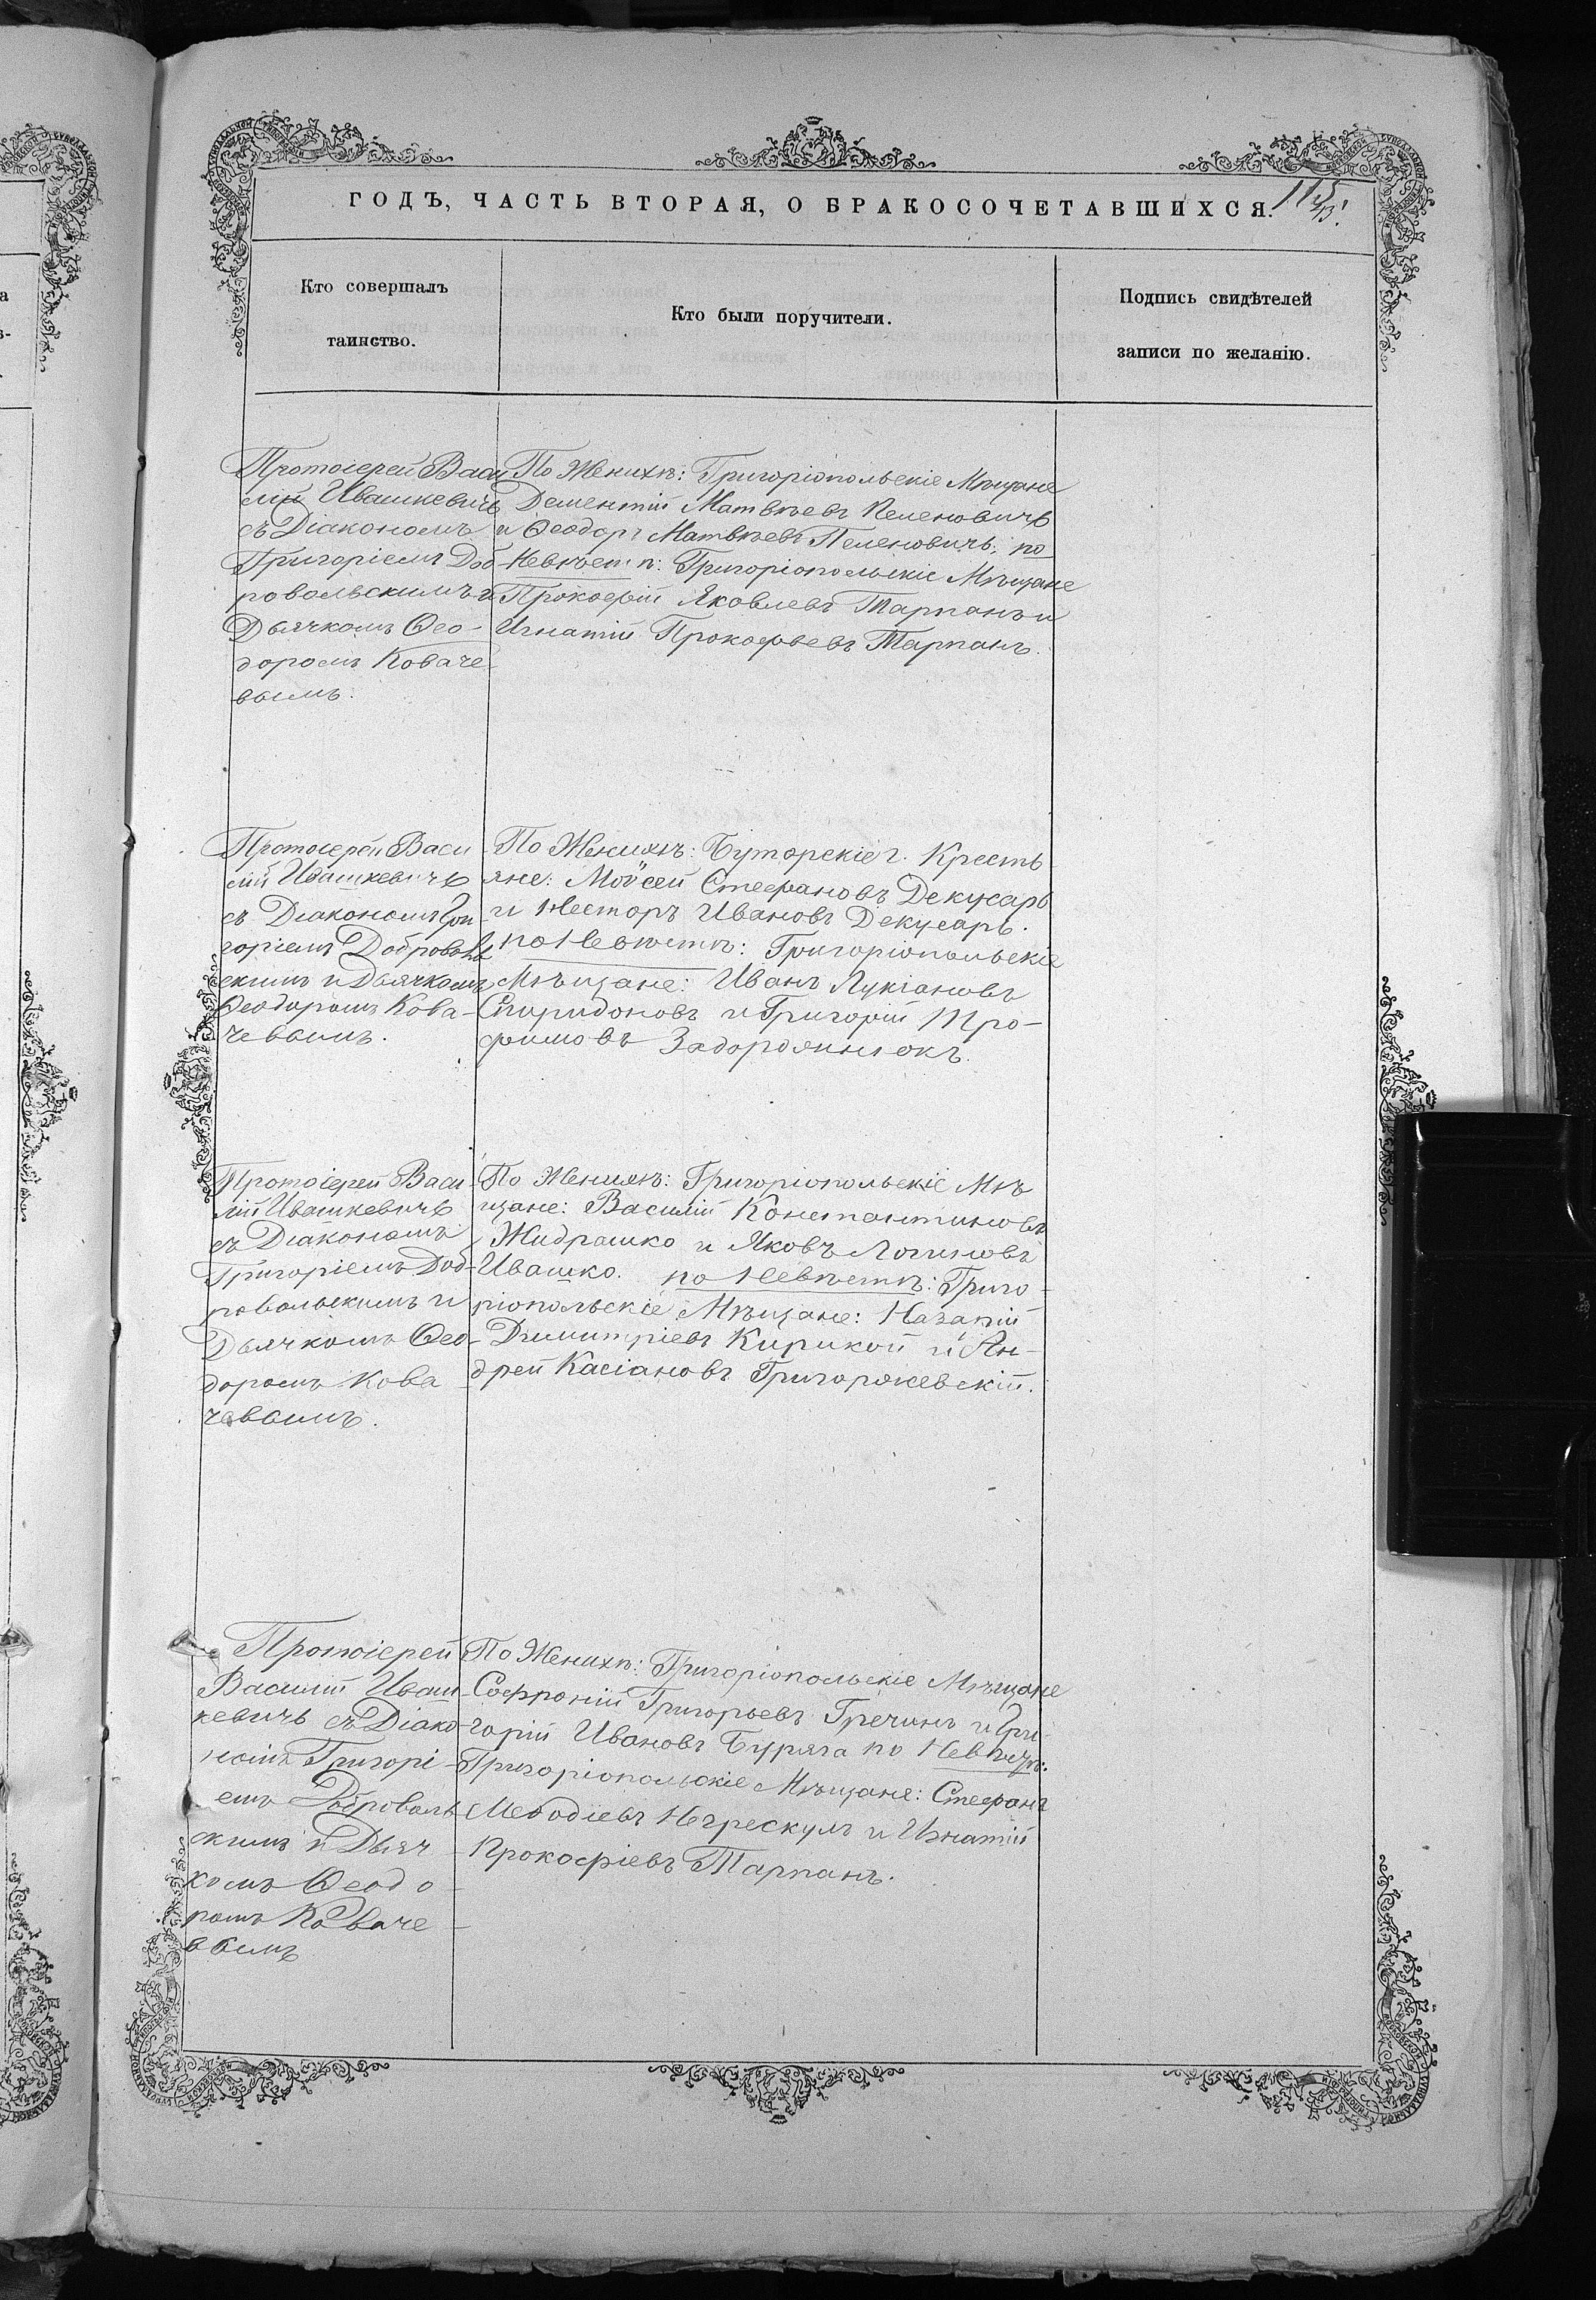 ГОДЪ, ЧАСТЬ ВТОРАЯ, О БРАКОСОЧЕТАВШИХСЯ.
115
Кто совершалъ
таинство.
Кто были поручители.
Подпись свидѣтелей
записи по желанію.
Протоіерей Васи
лій Ивашкевичъ
съ Діакономъ
Григоріемъ Доб
ровольскимъ и
Дьячкомъ Ѳео-
доромъ Коваче
вымъ.
По Женихѣ: Григоріопольскіе Мѣщане
Дементій Матвѣевъ Пеленовичъ
и Ѳеодоръ Матвѣевъ Пеленовичъ; по
Невѣстѣ: Григоріопольскіе Мѣщане
Прокофій Яковлевъ Тарпанъ и
Игнатій Прокофьевъ Тарпанъ.
Протоіерей Васи
лій Ивашкевичъ
съ Діакономъ Гри
горіемъ Доброволь
скимъ и Дьячкомъ
Ѳеодоромъ Кова-
чевымъ.
По Женихѣ: Буторскіе Кресть
яне: Мойсей Стефановъ Декусаръ
и Несторъ Ивановъ Декусаръ.
по Невѣстѣ: Григоріопольскіе
Мѣщане: Иванъ Лукіановъ
Спиридоновъ и Григорій Тро-
фимовъ Задорожнюкъ.
Протоіерей Васи
лій Ивашкевичъ
съ Діакономъ
Григоріемъ Доб-
ровольскимъ и
Дьячкомъ Ѳео-
доромъ Кова
чевымъ.
По Женихѣ: Григоріопольскіе Мѣ
щане: Василій Константиновъ
Жидрашко и Яковъ Логиновъ
Ивашко. по Невѣстѣ: Григо-
ріопольскіе Мѣщане: Назарій
Димитріевъ Кирикой и Ан-
дрей Касіановъ Григоржевскій.
Протоіерей
Василій Иваш-
кевичъ съ Діако-
номъ Григорі-
емъ Доброволь
скимъ и Дьяч
комъ Ѳеодо-
ромъ Коваче-
вымъ
По Женихѣ: Григоріопольскіе Мѣщане
Софроній Григорьевъ Гречинъ и Гри-
горій Ивановъ Буряга по Невѣстѣ:
Григоріопольскіе Мѣщане: Стефанъ
Меѳодіевъ Негрескулъ и Игнатій
Прокофіевъ Тарпанъ.